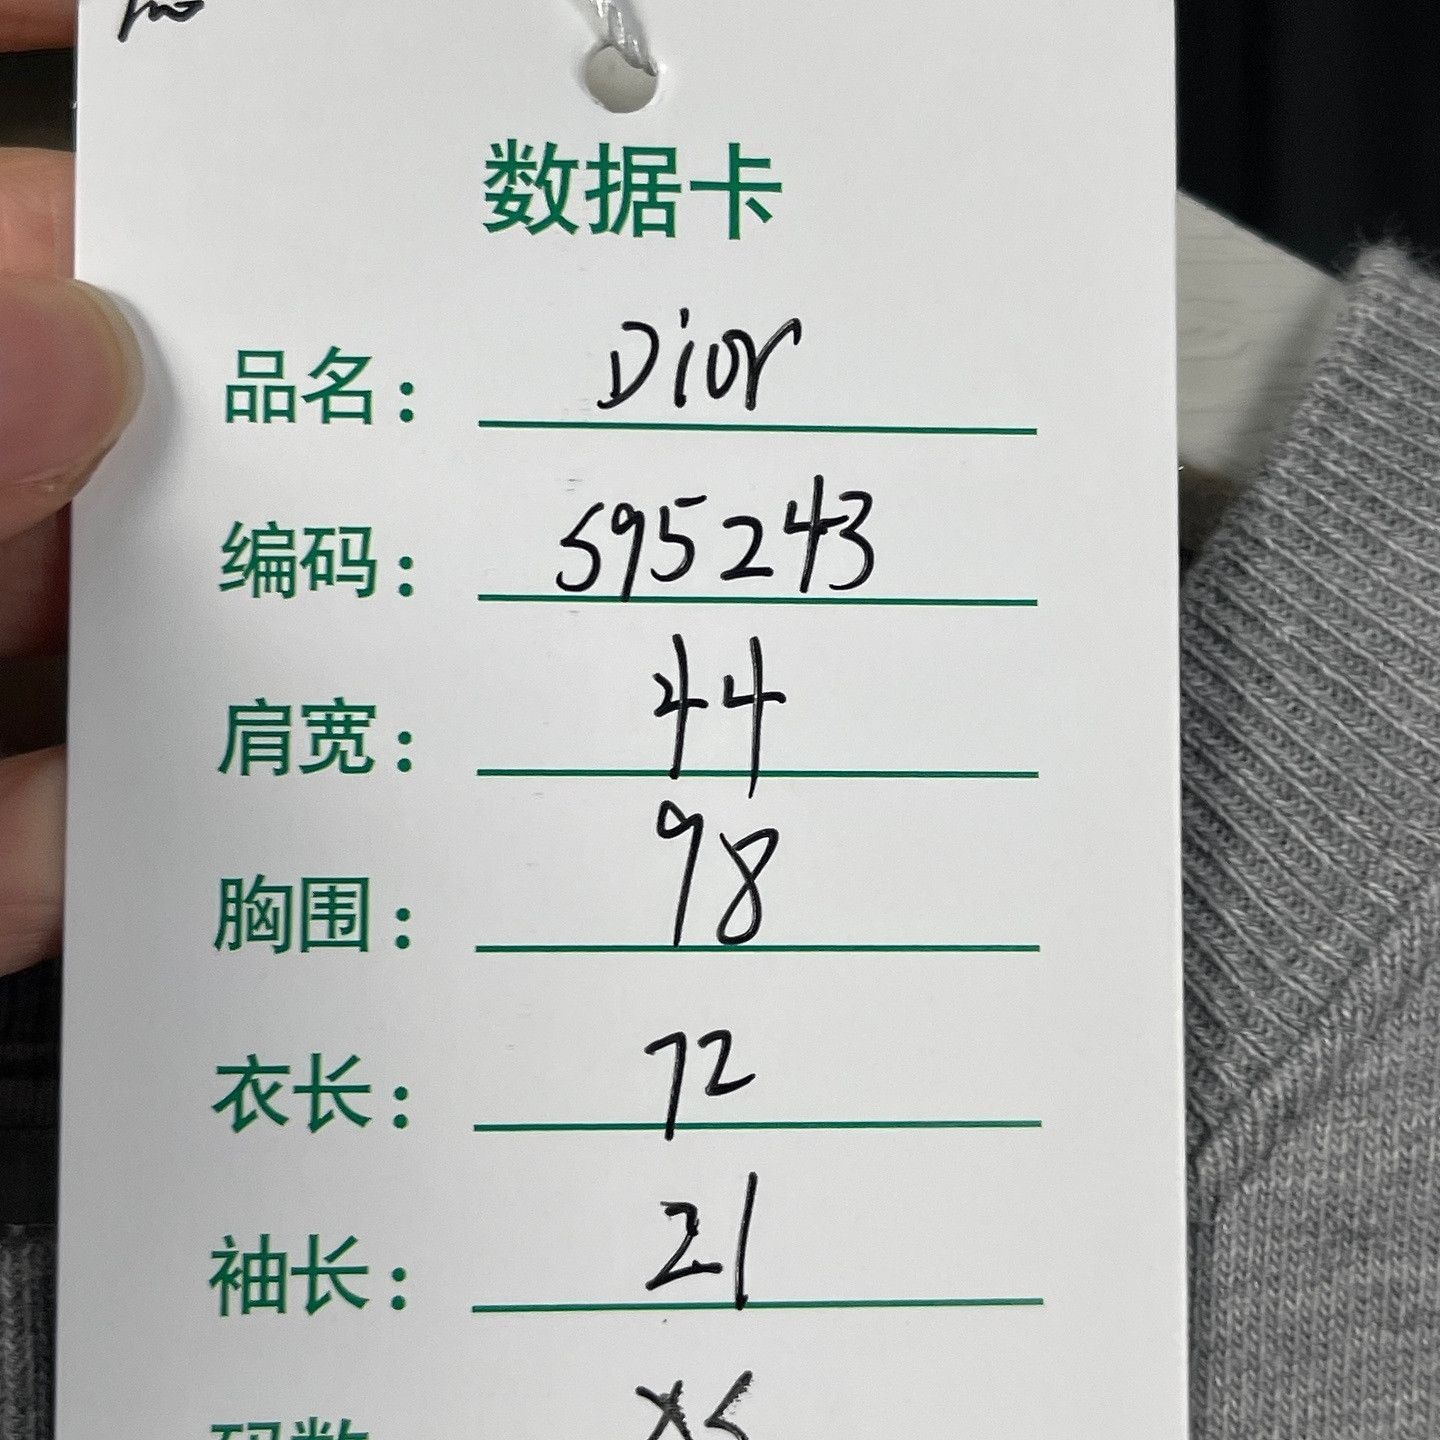 数据卡
品名: Dior
编码: 595243
肩宽: 44
胸围: 98
衣长: 72
袖长: 21
码数 XS